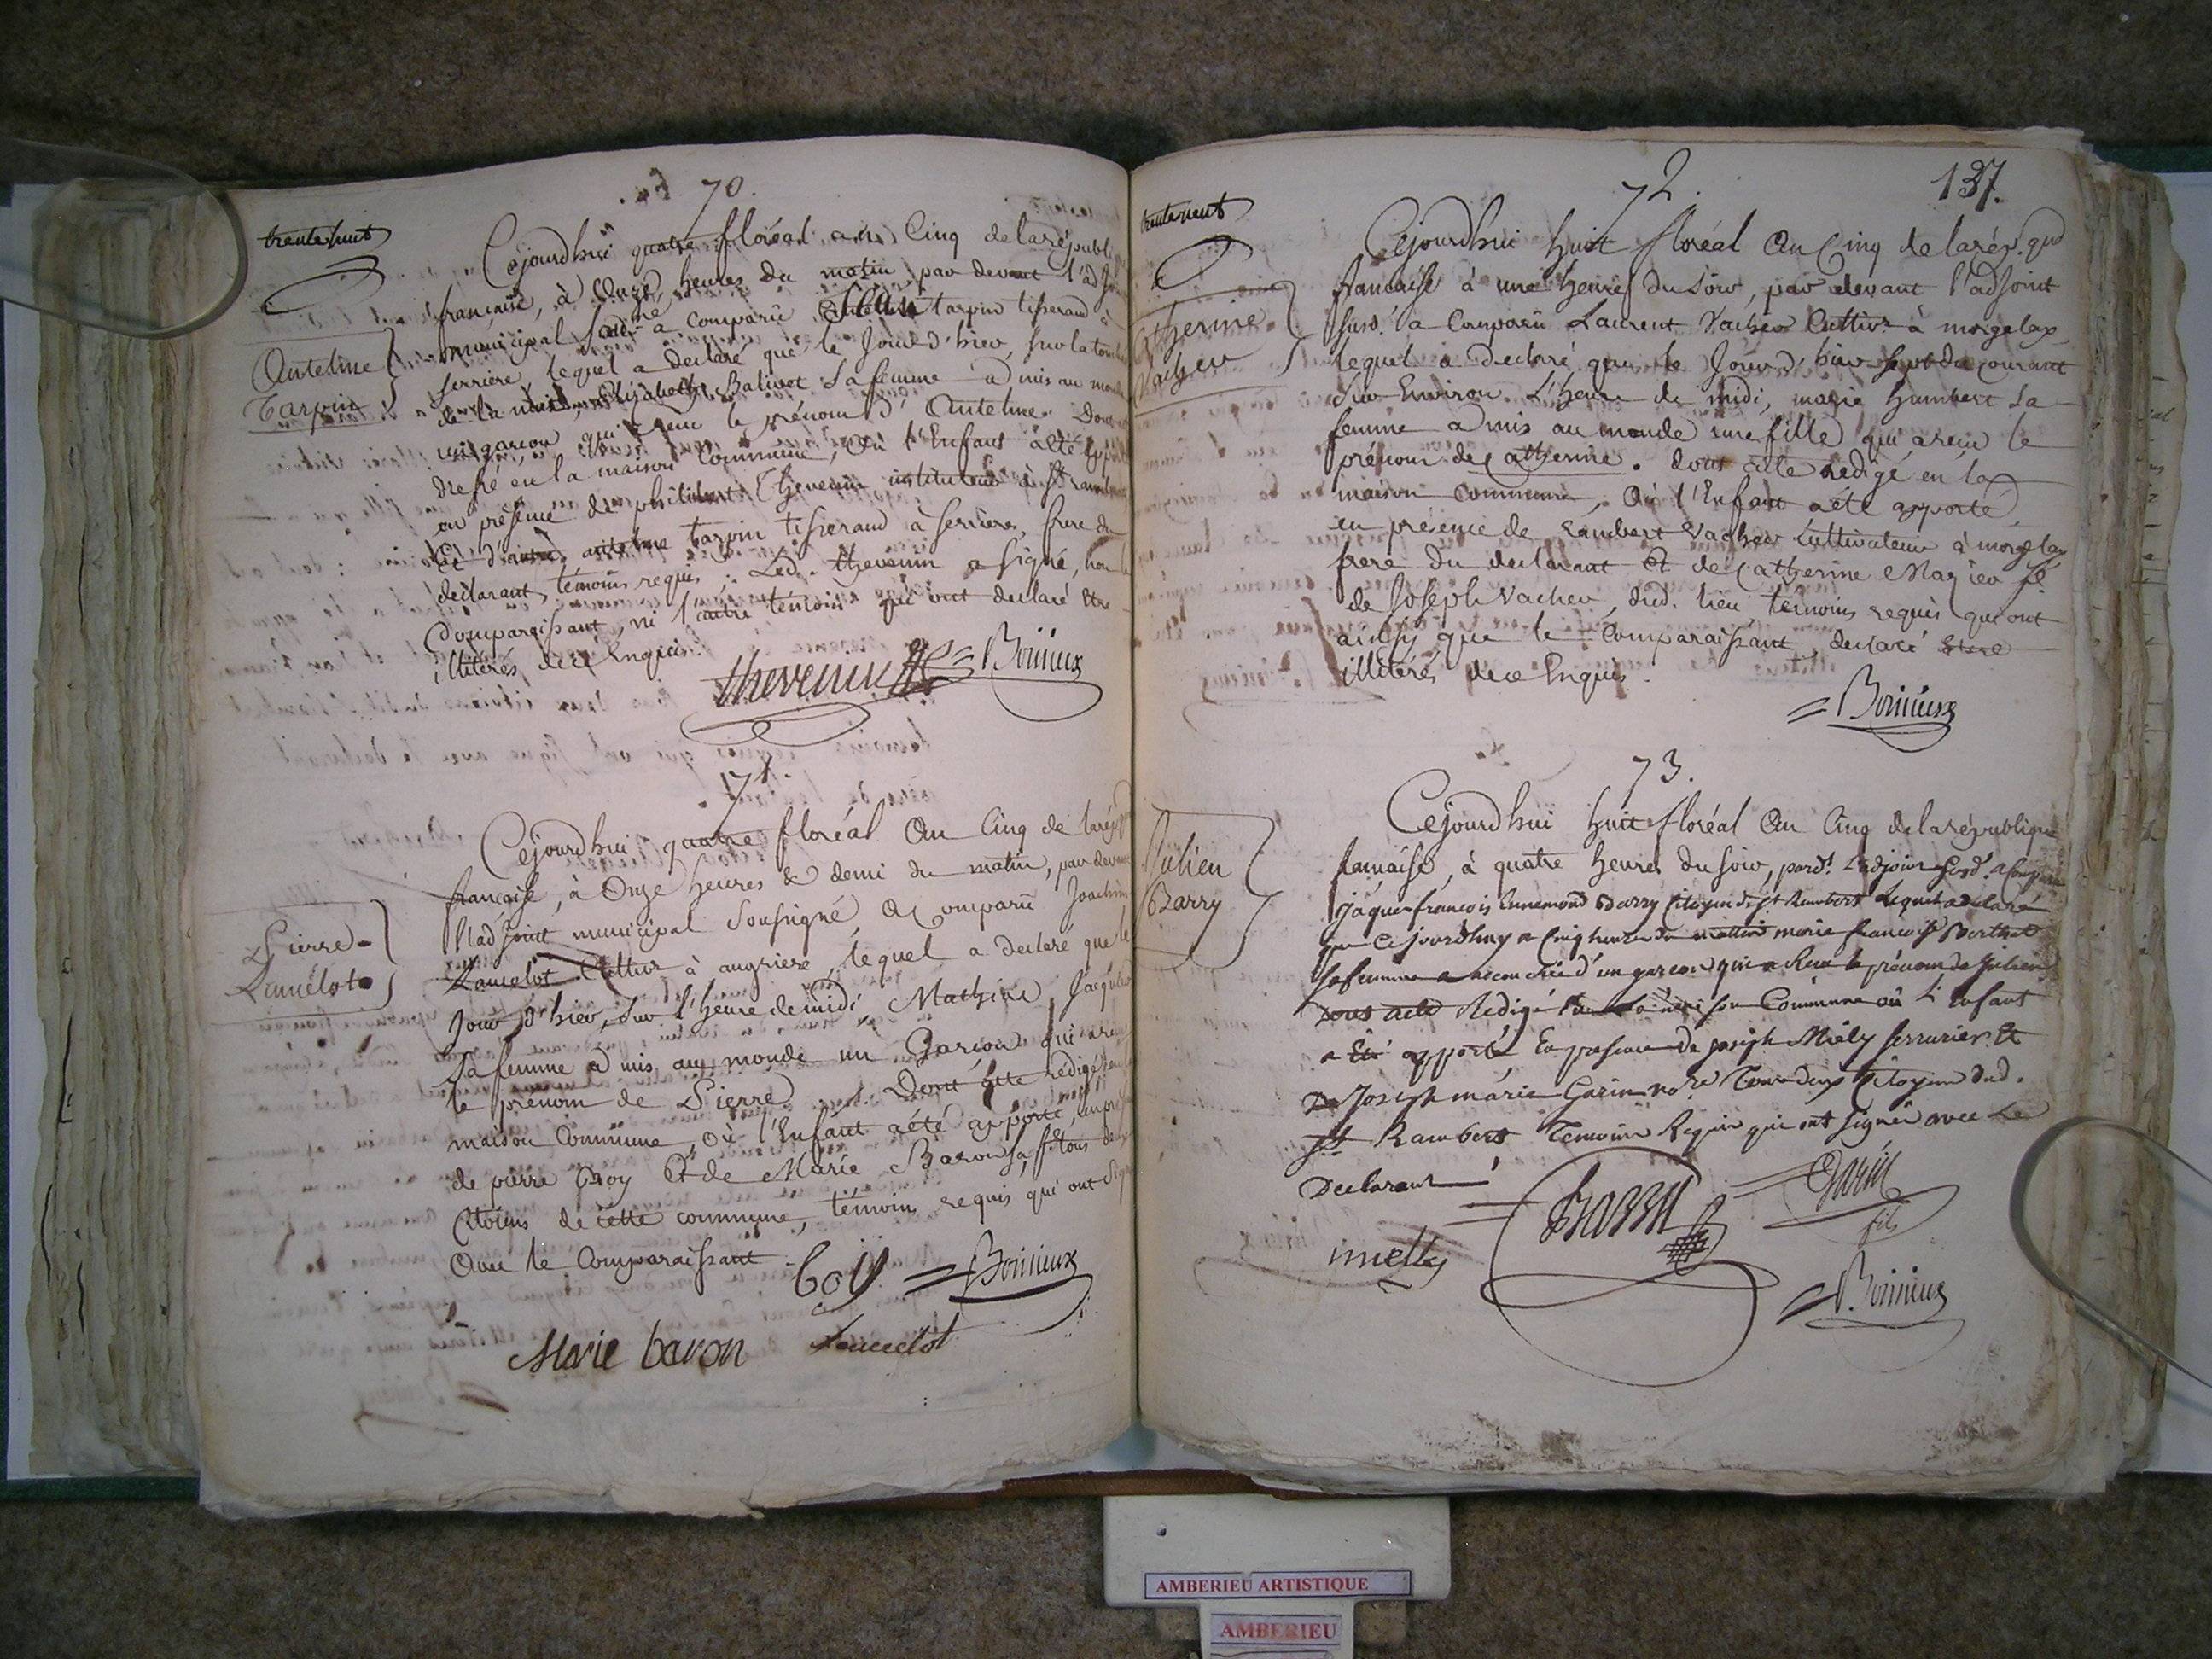 70.
trentehuit
Cejourdhui quatre floréal an Cinq de la républi
française, à Onze heures du matin par devant l'adj
municipal a comparû tarpin tisserand à
Anteline
Tarpin
serriere, lequel a declaré que le Jour d'hier, sur la
de la nuit, Elizabeth Balivet sa femme a mis au
un garçon qui a reçu le prénom d'Anteline. Dont
dressé en la maison Commune, où l'Enfant a été
en présence de philibert Thevenin instituteur à St
tarpin tisserand à serriere, frere du
declarant, témoins requis. Led. thevenin a signé, non le
Comparaissant, ni l'autre témoin qui ont declaré Etre
illitérés de ce Enquis.
thevenin Bonieux
71.
Cejourdhui quatre floréal an Cinq de la
française, à Onze heures & demi du matin, par devant
l'adjoint municipal Soussigné, a Comparû Joachim
Pierre
Lancelot
Lancelot Cultivr à angriere, lequel a declaré que le
Jour d'hier, sur l'heure de midi, Mathive
sa femme a mis au monde un Garçon qui a reçu
le prénom de Pierre. Dont acte redigé en la
maison Commune, où l'Enfant a été apporté, en
de pierre Boy Et de Marie Baron sa fe tous deux
Citoiens de cette commune, témoins requis qui ont
Avec le Comparaissant
boÿ Bonieux
Marie baron Lancelot
72.
137.
trenteneuf
Cejourdhui huit floréal an Cinq de la rép.
française à une heure du soir, par devant l'adjoint
Catherine
Vacher
suss. a Comparû Laurent Vacher Cultivr à morgelax
lequel a declaré que le Jour d'hier sept du courant
sur Environ l'heure de midi, marie humbert sa
femme a mis au monde une fille qui a reçu le
prénom de Catherine. dont acte redigé en la
maison commune, où l'Enfant a été apporté
en présence de Lambert Vacher Cultivateur à morgelax
frere du declarant Et de Catherine Mazier fe
de Joseph Vacher, dud. lieu temoins requis qui ont
ainsy que le Comparaissant, declaré Etre
illitérés de ce Enquis.
Bonieux
73.
Cejourdhui huit floréal an Cinq de la république
française, à quatre heures du soir, pard.t l'adjoint sousd. a Comparu
Julien
Barry
jaques françois Ennemond Barry Citoyen de St Rambert Lequel a declaré
que Cejourdhuy a Cinq heures du matin marie françoise Berthet
sa femme a accouchée d'un garçon qui a Reçu le prénom de Julien
Dont acte Redigé En la maison Commune où L'Enfant
a Eté apporté En presence de joseph Miely serrurier Et
De Joseph marie Garin no.re Tous deux Citoyens dud.
St Rambert Temoins Requis qui ont signé avec Le
Declarant
Barry Garin
fils
mielly
Bonieux
AMBERIEU ARTISTIQUE
AMBERIEU